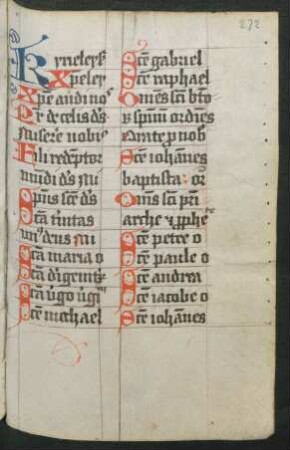 272
Kyrieleyson
Xpeleyson
Xpe audi nos
Pr de celis ds
Miserere nobis
Fili redeptor
mudi ds mi
Spus sce ds
Sca trinitas
un deus mi
Sca maria o
Sca dei genitx
Sca virgo virginu
Sce michael
Sce gabriel
Sce raphael
Omes sci btor
spirituu ordies
Orate p nobis
Sce iohanes
baptista or
Oms sci pri
arche et pphe
Sce petre o
Sce paule o
Sce andrea
Sce iacobe o
Sce iohanes